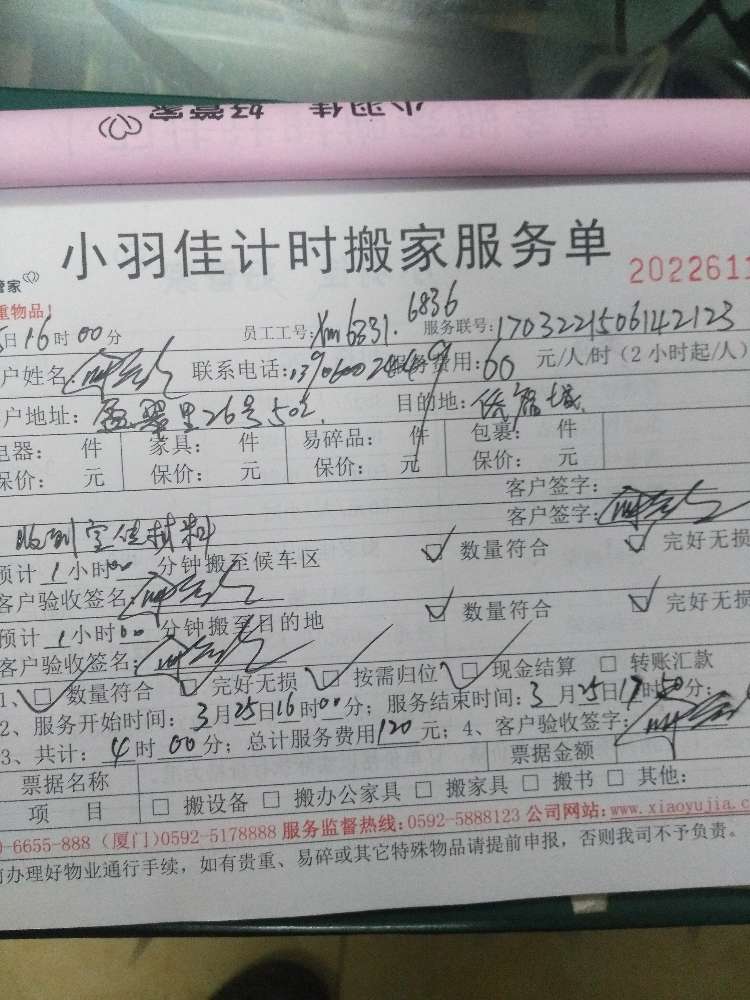 小羽佳 好管家
小羽佳计时搬家服务单
管家 2022611
重物品!
日16时00分 员工工号:Xm6331. 6836 服务联号:1703221506142123
户姓名: 联系电话: 服务费用:60 元/人/时(2小时起/人)
户地址: 翠里26号502 目的地:
电器: 件 家具: 件 易碎品: 件 包裹: 件
保价: 元 保价: 元 保价: 元 保价: 元
客户签字:
客户签字:
预计1小时00分钟搬至候车区 ☑ 数量符合 ☑ 完好无损
客户验收签名:
预计1小时00分钟搬至目的地 ☑ 数量符合 ☑ 完好无损
客户验收签名:
1、☑ 数量符合 ☑ 完好无损 ☑ 按需归位 ☑ 现金结算 □ 转账汇款
2、服务开始时间:3月25日16时00分;服务结束时间:3月25日17时50分;
3、共计:4时00分;总计服务费用120元;4、客户验收签字:
票据名称 票据金额
项 目 □ 搬设备 □ 搬办公家具 □ 搬家具 □ 搬书 □ 其他:
0-6655-888 (厦门)0592-5178888 服务监督热线:0592-5888123 公司网站:www.xiaoyujia.c
前办理好物业通行手续,如有贵重、易碎或其它特殊物品请提前申报,否则我司不予负责。